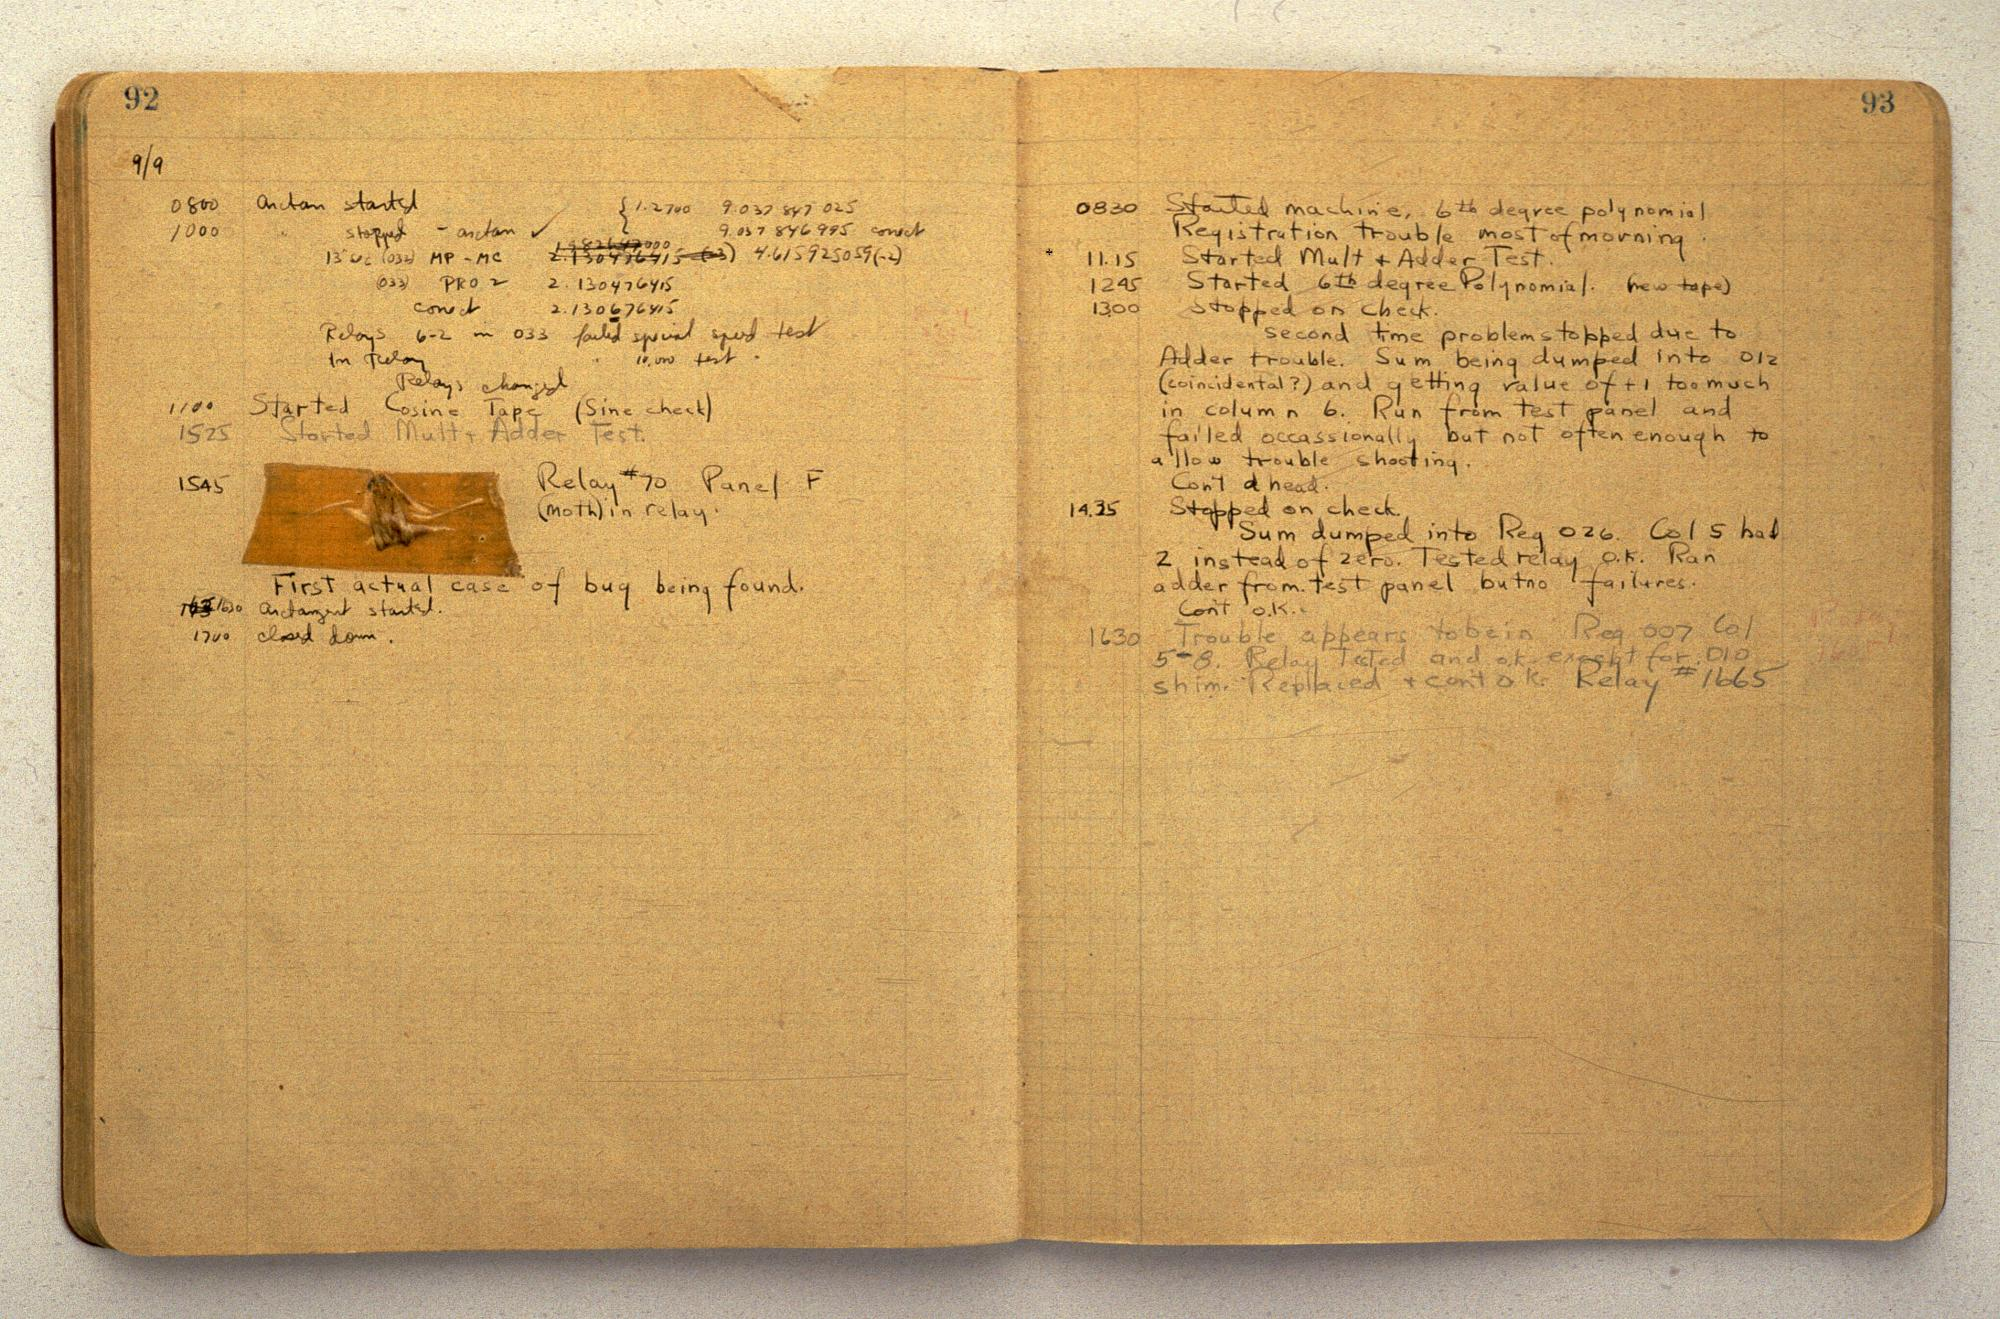 92
9/9
0800 Arctan started { 1.2700 9.037 847 025
1000 " stopped - arctan ✓ 9.037 846 995 correct
13"uc (033) MP-MC 4.615925059(-2)
(033) PRO 2 2.130476415
correct 2.130676415
Relays 6-2 in 033 failed special speed test
In Relay " 10,000 test "
Relays changed
1100 Started Cosine Tape (Sine check)
1525 Started Mult+ Adder Test.
1545 Relay #70 Panel F
(moth) in relay.
First actual case of bug being found.
1630 Arctangent started.
1700 closed down.
93
0830 Started machine, 6th degree polynomial
Registration trouble most of morning.
11.15 Started Mult + Adder Test.
1245 Started 6th degree Polynomial. (new tape)
1300 Stopped on check.
Second time problem stopped due to
Adder trouble. Sum being dumped into 012
(coincidental?) and getting value of +1 too much
in column 6. Run from test panel and
failed occassionally but not often enough to
allow trouble shooting.
Con't ahead.
14.35 Stopped on check.
Sum dumped into Reg 026. Col 5 had
2 instead of zero. Tested relay O.K. Ran
adder from test panel but no failures.
Con't O.K.
1630 Trouble appears to be in Reg 007 Col
5-8. Relay Tested and o.k. except for 010
shim. Replaced + con't O.K. Relay #1665
Relay